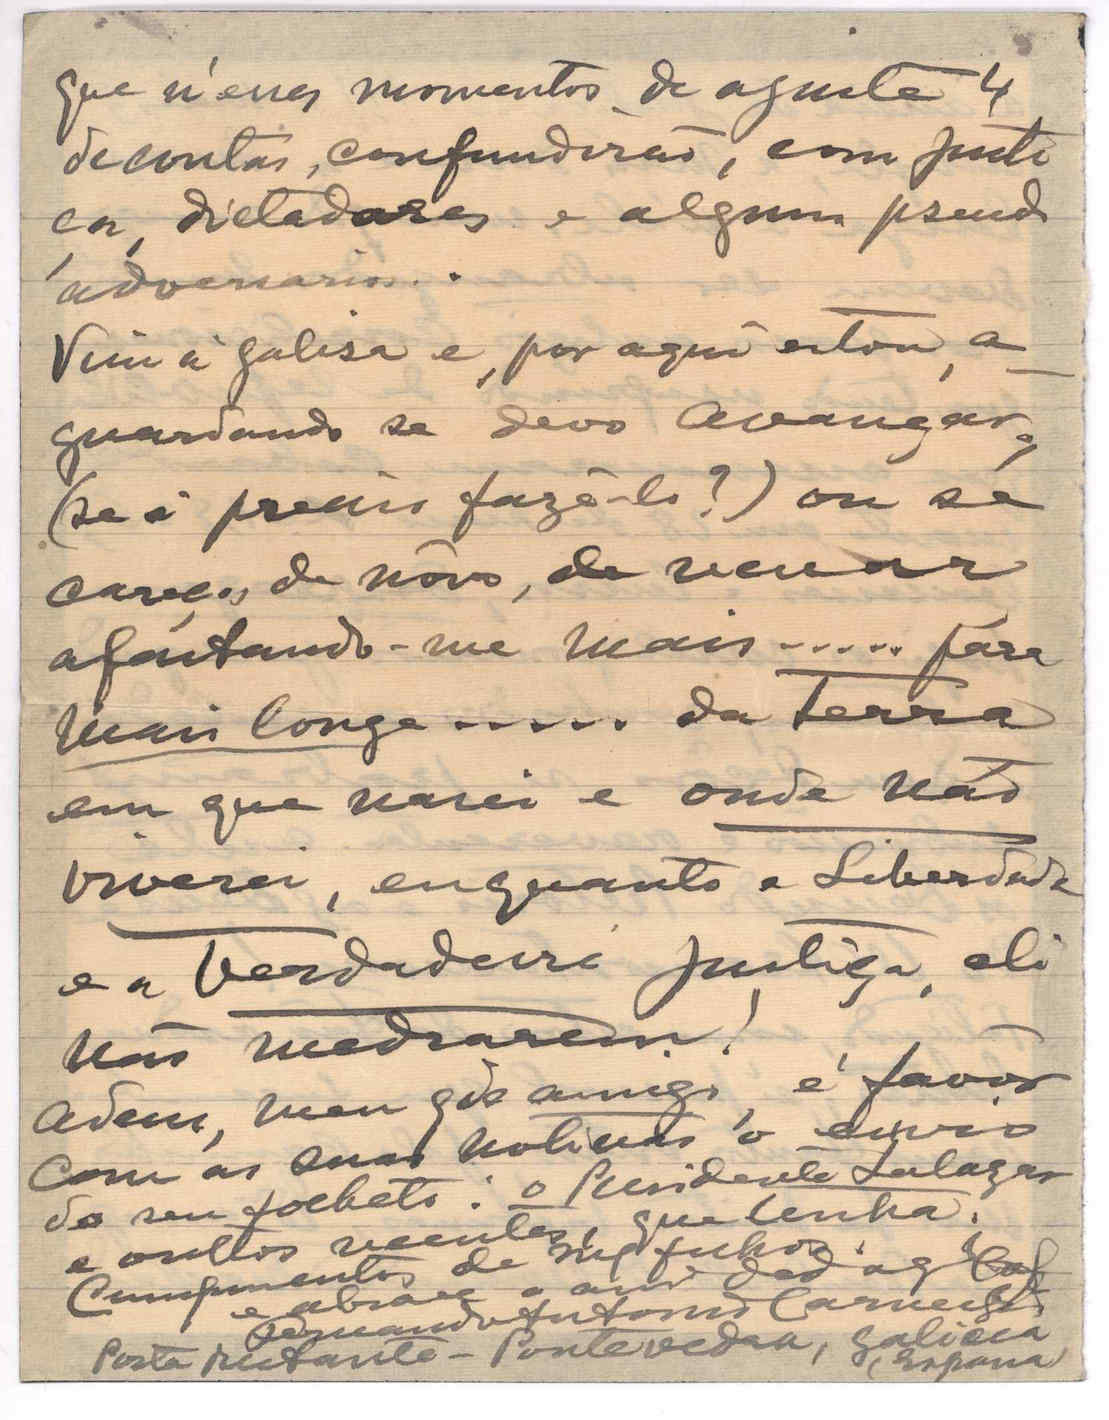 que n'esses momentos de ajuste
de contas, confundirão, com justi
ça, dictadores e alguns pseudo
adversarios.
Vim à Galisa e, por aqui estou, a
guardando se devo avançar,
(se é preciso fazê-lo?) ou se
careço, de nôvo, de recuar
afastando-me mais ...... para
mais longe ...... da Terra
em que nasci e onde não
viverei, enquanto a Liberdade
e a Verdadeira Justiça, ali
não medrarem!
Adeus, meu gde amigo, é favôr
com as suas noticias o envio
do seu folheto: o Presidente Salazar
e outros recentes, que tenha.
Cumprimentos de
e abrace o am.º ded.
Fernando Antonio
Posta restante - Pontevedra, Galicia
(España)